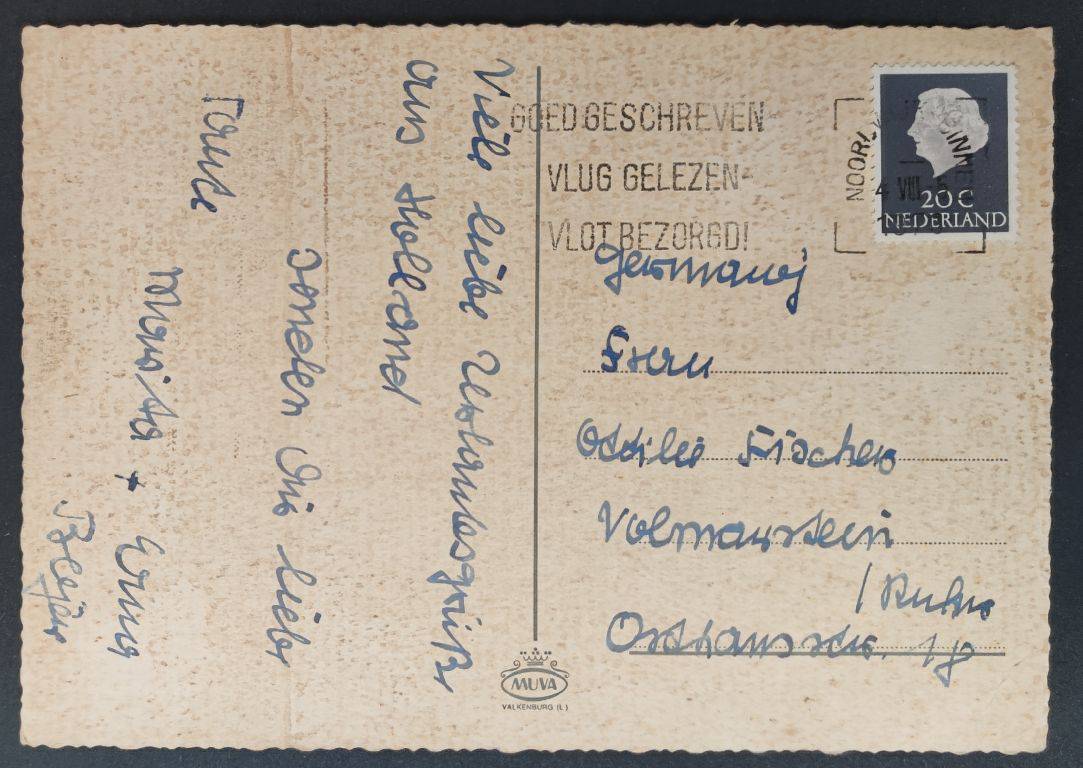 Viele liebe Urlaubsgrüße
aus Holland
senden Dir liebe
Tante
Marita + Erna
GOED GESCHREVEN
VLUG GELEZEN
VLOT BEZORGD!
4 VIII
20 C
NEDERLAND
Germany
Frau
Ottilie Fischer
Volmarstein
/Ruhr
MUVA
VALKENBURG (L)